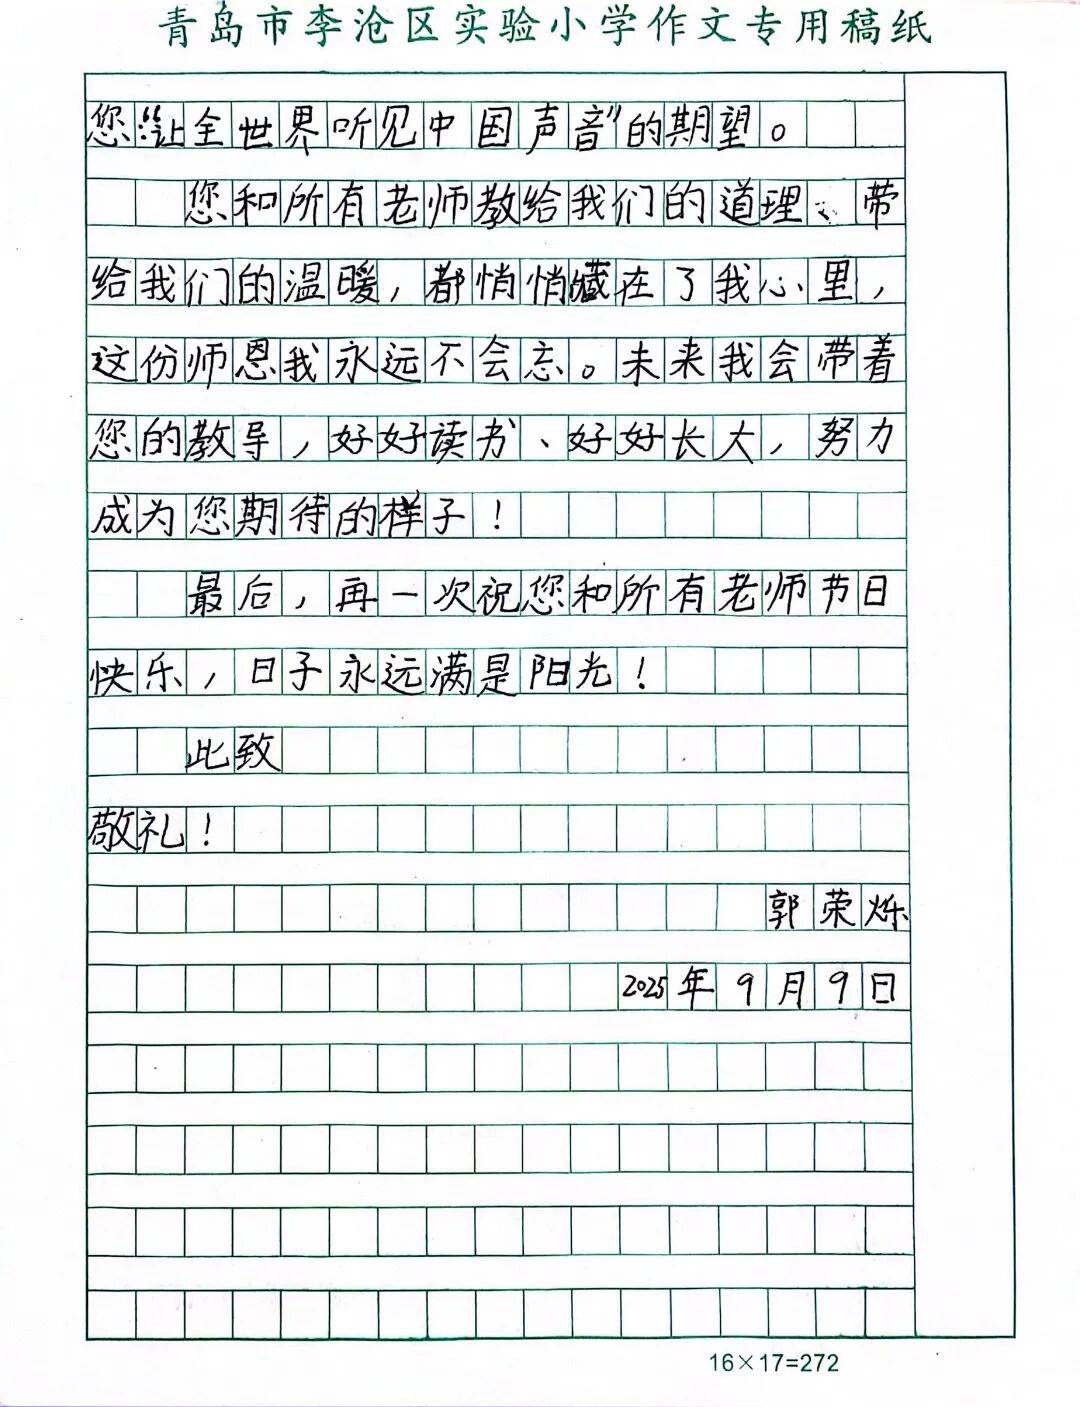 青岛市李沧区实验小学作文专用稿纸
您“让全世界听见中国声音”的期望。
您和所有老师教给我们的道理、带
给我们的温暖，都悄悄藏在了我心里，
这份师恩我永远不会忘。未来我会带着
您的教导，好好读书、好好长大，努力
成为您期待的样子！
最后，再一次祝您和所有老师节日
快乐，日子永远满是阳光！
此致
敬礼！
郭荣烁
2025年9月9日
16×17=272